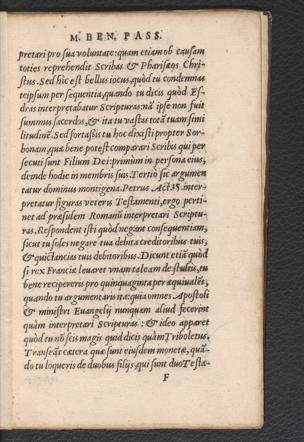 M. BEN. PASS.
pretari pro sua voluntate: quam etiam ob causam
toties reprehendit Scribas & Pharisæos Chri-
stus. Sed hîc est bellus iocus, quòd tu condemnas
teipsum per sequentia, quando tu dicis quòd Es-
dras interpretabatur Scripturas: nā ipse non fuit
summus sacerdos, & ita tu vastas totā tuam simi
litudinē. Sed fortaßis tu hoc dixisti propter Sor-
bonam, quæ bene potest comparari Scribis qui per
secuti sunt Filium Dei: primùm in persona eius,
deinde hodie in membris suis. Tertiò sic argumen
tatur dominus montigena. Petrus Act. inter-
pretatur figuras veteris Testamenti, ergo perti-
net ad præsidem Romanū interpretari Scriptu-
ras. Respondent isti quòd negant consequentiam,
sicut tu soles negare tua debita creditoribus tuis,
& quictancias tuis debitoribus. Dicunt etiā quòd
si rex Franciæ leuaret vnam taleam de stultis, tu
bene recipereris pro quinquaginta per æquiualēs,
quando tu argumentaris ita: quia omnes Apostoli
& ministri Euangelij nunquam aliud fecerint
quàm interpretari Scripturas: & ideo apparet
quòd tu nō scis magis quid dicis quàm Triboletus.
Transeāt cætera quæ sunt eiusdem monetæ, quā-
do tu loqueris de duobus filijs, qui sunt duo Testa-
F